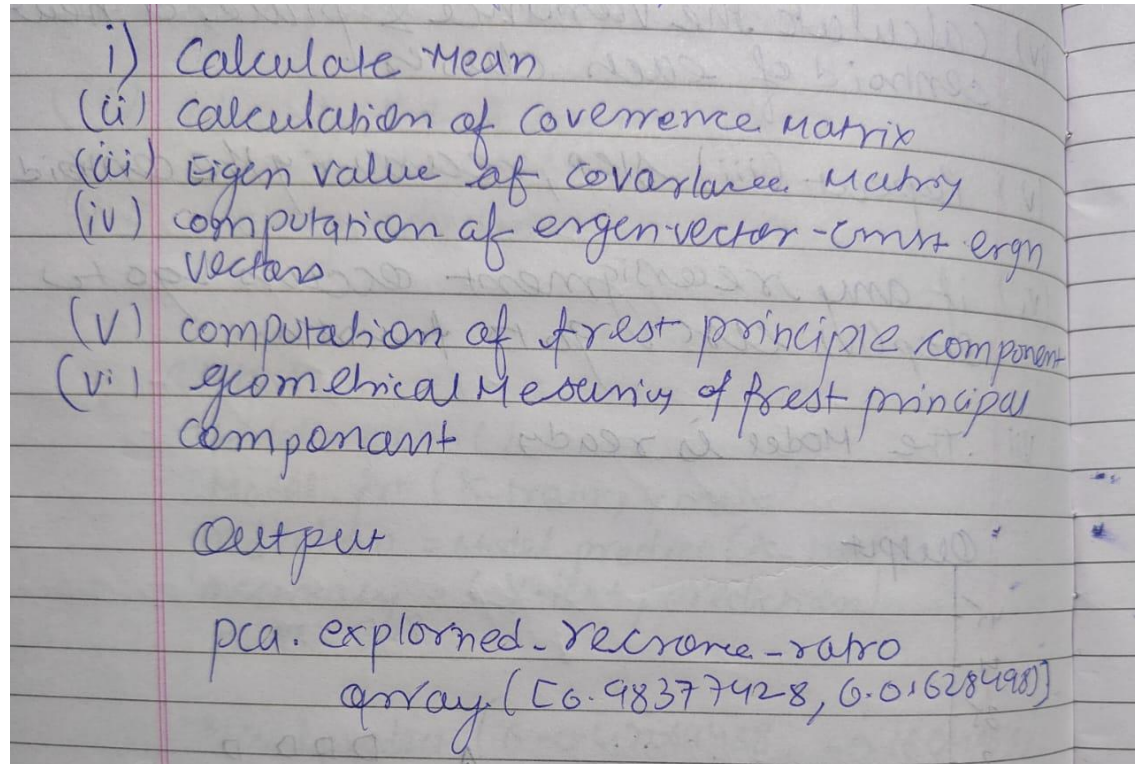 i) Calculate Mean
(ii) Calculation of Coverrence Matrix
(iii) Eigen value of Covariance Matrix
(iv) computation of ergenvector - ergn
vectors
(v) computation of frest principle component
(vi) geometrical of frest principal
componant
Output
pca.explorned_recrome_ratio
array([0.98377428, 0.01628498)]